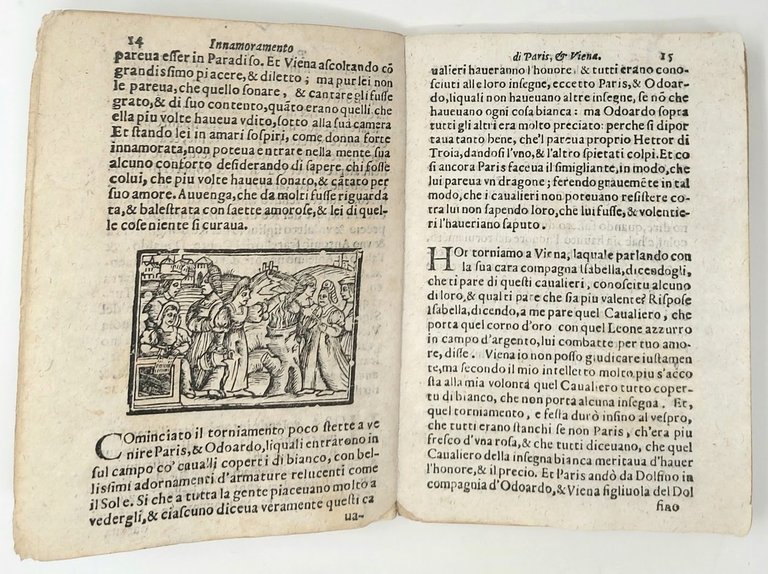 14
Innamoramento
pareua esser in Paradiso. Et Viena ascoltando cõ
grandissimo piacere, & diletto; ma pur lei non
le pareua, che quello sonare, & cantare gli fusse
grato, & di suo contento, quãto erano quelli che
ella piu volte haueua vdito, sotto alla sua camera
Et stando lei in amari sospiri, come donna forte
innamorata, non poteua entrare nella mente sua
alcuno conforto desiderando di sapere chi fosse
colui, che piu volte haueua sonato, & cãtato per
suo amore. Auuenga, che da molti fusse riguarda
ta, & balestrata con saette amorose, & lei di quel-
le cose niente si curaua.
COminciato il torniamento poco stette a ve
nire Paris, & Odoardo, liquali entrarono in
sul campo co' caualli coperti di bianco, con bel-
lissimi adornamenti d'armature relucenti come
il Sole. Si che a tutta la gente piaceuano molto a
vedergli, & ciascuno diceua veramente questi ca
ua-
di Paris, & Viena.
15
ualieri haueranno l'honore, & tutti erano cono-
sciuti alle loro insegne, eccetto Paris, & Odoar-
do, liquali non haueuano altre insegne, se nõ che
haueuano ogni cosa bianca: ma Odoardo sopra
tutti gli altri era molto preciato: perche si dipor
taua tanto bene, che'l pareua proprio Hettor di
Troia, dandosi l'vno, & l'altro spietati colpi. Et co
si ancora Paris faceua il simigliante, in modo, che
lui pareua vn dragone; ferendo grauemẽte in tal
modo, che i caualieri non poteuano resistere co̅
tra lui non sapendo loro, che lui fusse, & volentie
ri l'haueriano saputo.
HOr torniamo a Virna, laquale parlando con
la sua cara compagna Isabella, dicendogli,
che ti pare di questi caualieri, conoscitu alcuno
di loro, & qual ti pare che sia piu valente? Rispose
Isabella, dicendo, a me par quel Caualiero, che
porta quel corno d'oro con quel Leone azzurro
in campo d'argento, lui combatte per tuo amo-
re, disse. Viena io non posso giudicare iustamen
te, ma secondo il mio intelletto molto piu s'acco
sta alla mia volontà quel Caualiero tutto coper-
tu di bianco, che non porta alcuna insegna. Et,
quel torniamento, e festa durò insino al vespro,
che tutti erano stanchi se non Paris, ch'era piu
fresco d'vna rosa, & che tutti diceuano, che quel
Caualiero della insegna bianca meritaua d'hauer
l'honore, & il precio. Et Paris andò da Dolfino in
compagnia d'Odoardo, & Viena figliuola del Dol
fino